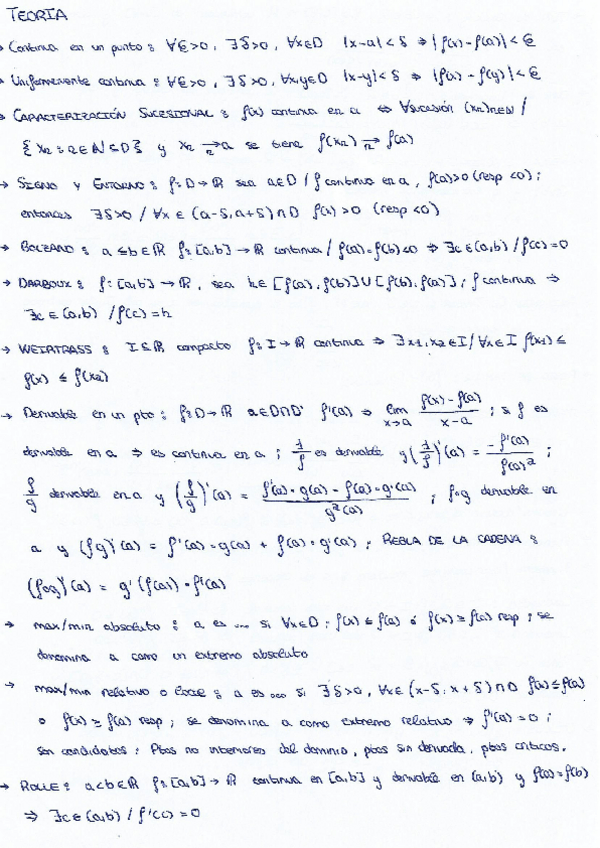 TEORÍA
→ Continua en un punto : ∀ε>0, ∃δ>0, ∀x∈D |x-a|<δ ⇒ |f(x)-f(a)|<ε
→ Uniformemente continua : ∀ε>0, ∃δ>0, ∀x,y∈D |x-y|<δ ⇒ |f(x)-f(y)|<ε
→ CARACTERIZACIÓN SUCESIONAL : f(x) continua en a ⇔ ∀sucesión (xn)n∈N /
{xn : n∈N ⊆ D} y xn →n a se tiene f(xn) →n f(a)
→ SIGNO Y ENTORNO : f:D→R sea a∈D / f continua en a, f(a)>0 (resp <0) ;
entonces ∃δ>0 / ∀x ∈ (a-δ, a+δ)∩D f(x)>0 (resp <0)
→ BOLZANO : a≤b∈R f:[a,b]→R continua / f(a)·f(b)<0 ⇒ ∃c∈(a,b) / f(c)=0
→ DARBOUX : f:[a,b]→R, sea h∈[f(a),f(b)]∪[f(b),f(a)] ; f continua ⇒
∃c∈(a,b) / f(c)=h
→ WEIRTRASS : I⊆R compacto f:I→R continua ⇒ ∃x1,x2∈I / ∀x∈I f(x1)≤
f(x) ≤ f(x2)
→ Derivable en un pto : f:D→R a∈D∩D' f'(a) ⇒ lim x→a (f(x)-f(a))/(x-a) ; si f es
derivable en a ⇒ es continua en a ; 1/f es derivable y (1/f)'(a) = -f'(a)/f(a)² ;
f/g derivable en a y (f/g)'(a) = (f'(a)·g(a) - f(a)·g'(a))/g²(a) ; f·g derivable en
a y (fg)'(a) = f'(a)·g(a) + f(a)·g'(a) ; REGLA DE LA CADENA :
(fog)'(a) = g'(f(a))·f'(a)
→ max/min absoluto : a es ... si ∀x∈D : f(x)≤f(a) ó f(x)≥f(a) resp ; se
denomina a como un extremo absoluto
→ max/min relativo o local : a es ... si ∃δ>0, ∀x∈(x-δ, x+δ)∩D f(x)≤f(a)
o f(x)≥f(a) resp ; se denomina a como extremo relativo ⇒ f'(a)=0 ;
son candidatos : Ptos no interiores del dominio, ptos sin derivada, ptos críticos.
→ ROLLE : a<b∈R f:[a,b]→R continua en [a,b] y derivable en (a,b) y f(a)=f(b)
⇒ ∃c∈(a,b) / f'(c)=0